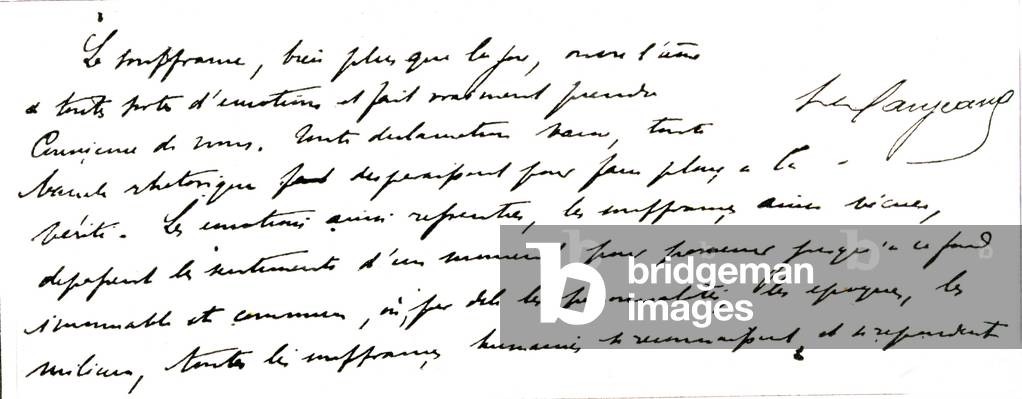 La souffrance, bien plus que la joie, ouvre l'âme
à toutes sortes d'émotions et fait vraiment prendre
Conscience de nous. Toute déclamation vaine, toute
banale rhétorique disparaissent pour faire place à la
vérité. Les émotions ainsi ressenties, les souffrances ainsi vécues,
dépassent les sentiments d'un moment pour parvenir jusqu'à ce fond
immuable et commun, où, par delà les personnalités, les époques, les
milieux, toutes les souffrances humaines se reconnaissent, et se répondent
bridgeman
images
b